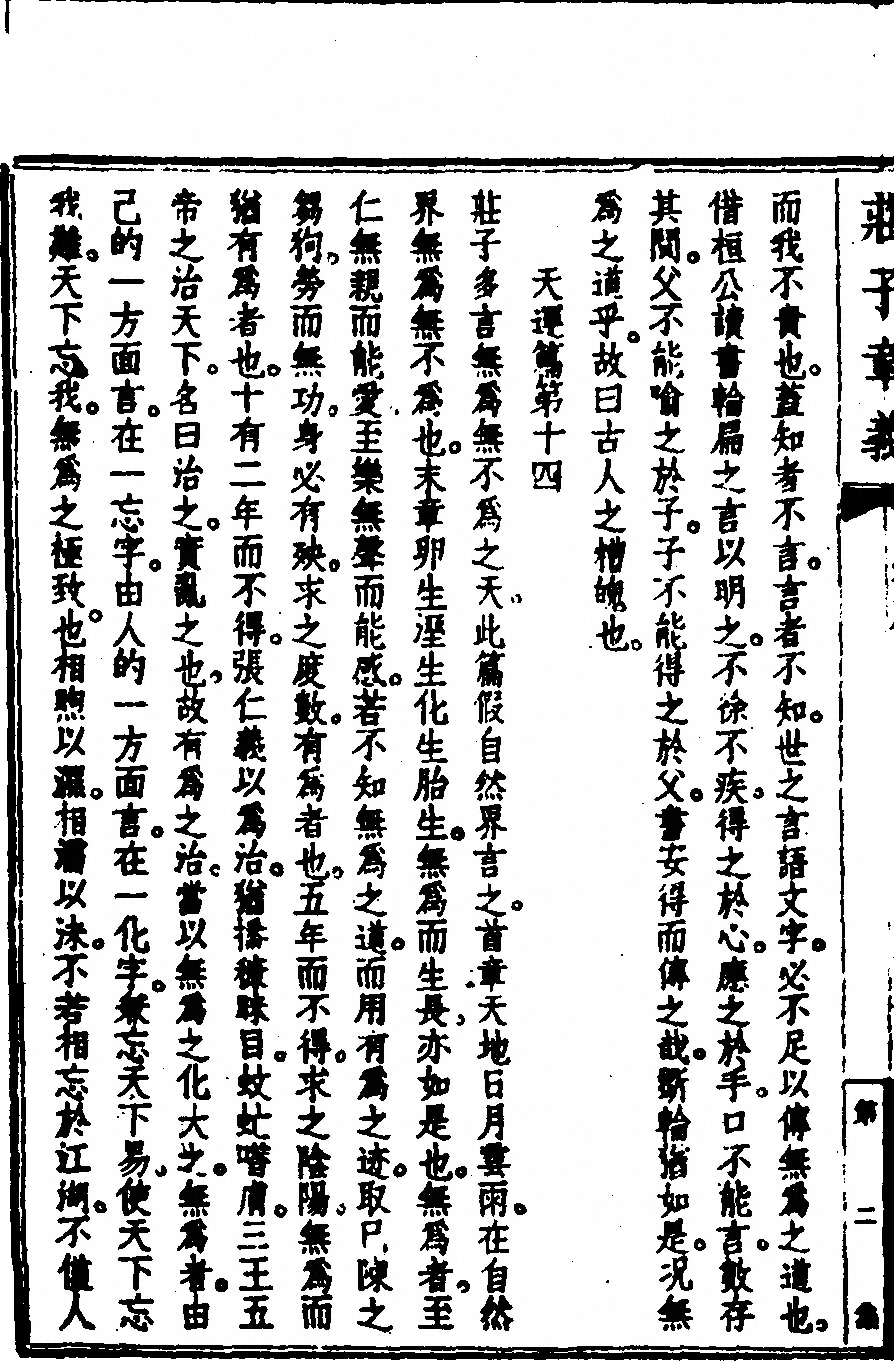 莊子章義
第二集
而我不貴也。蓋知者不言。言者不知。世之言語文字。必不足以傳無爲之道也。
借桓公讀書輪扁之言以明之。不徐不疾、得之於心。應之於手。口不能言。數存
其間。父不能喻之於子。子不能得之於父。書安得而傳之哉。斲輪猶如是。況無
爲之道乎。故曰古人之糟魄也。
天運篇第十四
莊子多言無爲無不爲之天、此篇假自然界言之。首章天地日月雲雨。在自然
界無爲無不爲也。末章卵生溼生化生胎生。無爲而生長、亦如是也。無爲者、至
仁無親而能愛、至樂無聲而能感。若不知無爲之道。而用有爲之迹。取尸陳之
芻狗、勞而無功、身必有殃。求之度數。有爲者也、五年而不得。求之陰陽、無爲而
猶有爲者也。十有二年而不得。張仁義以爲治。猶播糠眯目。蚊虻噆膚。三王五
帝之治天下。名曰治之。實亂之也、故有爲之治、當以無爲之化大之。無爲者。由
己的一方面言。在一忘字。由人的一方面言。在一化字。兼忘天下易、使天下忘
我難。天下忘我。無爲之極致也。相煦以濕。相濡以沫。不若相忘於江湖。不僅人